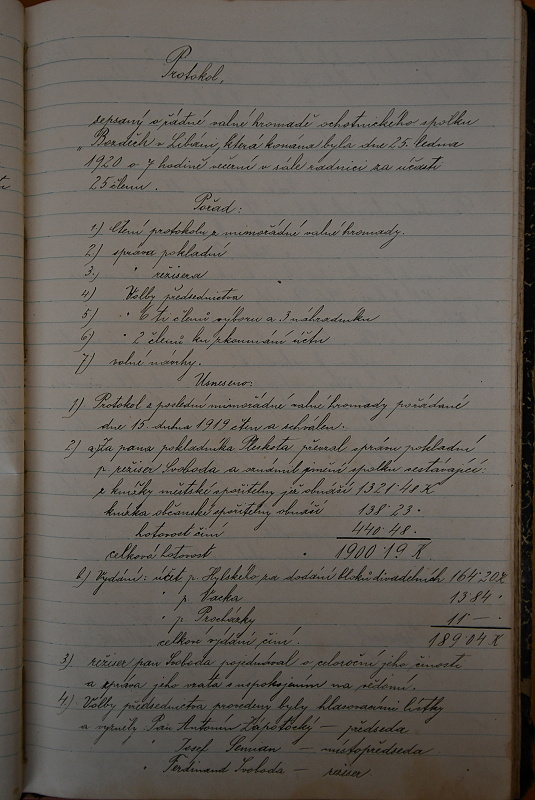 Protokol,
sepsaný o řádné valné hromadě ochotnického spolku
„Bozděch v Libáni, která konána byla dne 25. ledna
1920 o 7 hodině večerní v sále radnici za účasti
25 členů.
Pořad:
1.) Čtení protokolu z mimořádné valné hromady.
2.) správa pokladní
3.) " režisera
4) Volby předsednictva
5) " 6 ti členů výboru a 3 náhradníků
6) " 2 členů ku zkoumání účtů
7) volné návrhy.
Usneseno:
1) Protokol z poslední mimořádné valné hromady pořádané
dne 15. dubna 1919 čten a schválen.
2) a) Za pana pokladníka Pleskota převzal správu pokladní
p. režiser Svoboda a oznámil jmění spolku sestávající:
z knížky městské spořitelny jež obnáší 1321·48 K
knížka občanské spořitelny obnáší 138·23 ·
hotovost činí 440·48 ·
celková hotovost 1900·19 K
b) Vydání: účet p. Hylského za dodání bloků divadelních 164·20 K
" p. Vacka 13·84 "
" p. Procházky 11 — "
celkové vydání činí. 189·04 K
3) režiser pan Svoboda pojednával o celoroční jeho činosti
a zpráva jeho vzata s uspokojením na vědomí.
4.) Volby předsednictva provedeny byly hlasovacími lístky
a vyzněly Pan Antonín Zápotocký — předseda
" Josef Semian — místopředseda
" Ferdinand Svoboda — režiser.